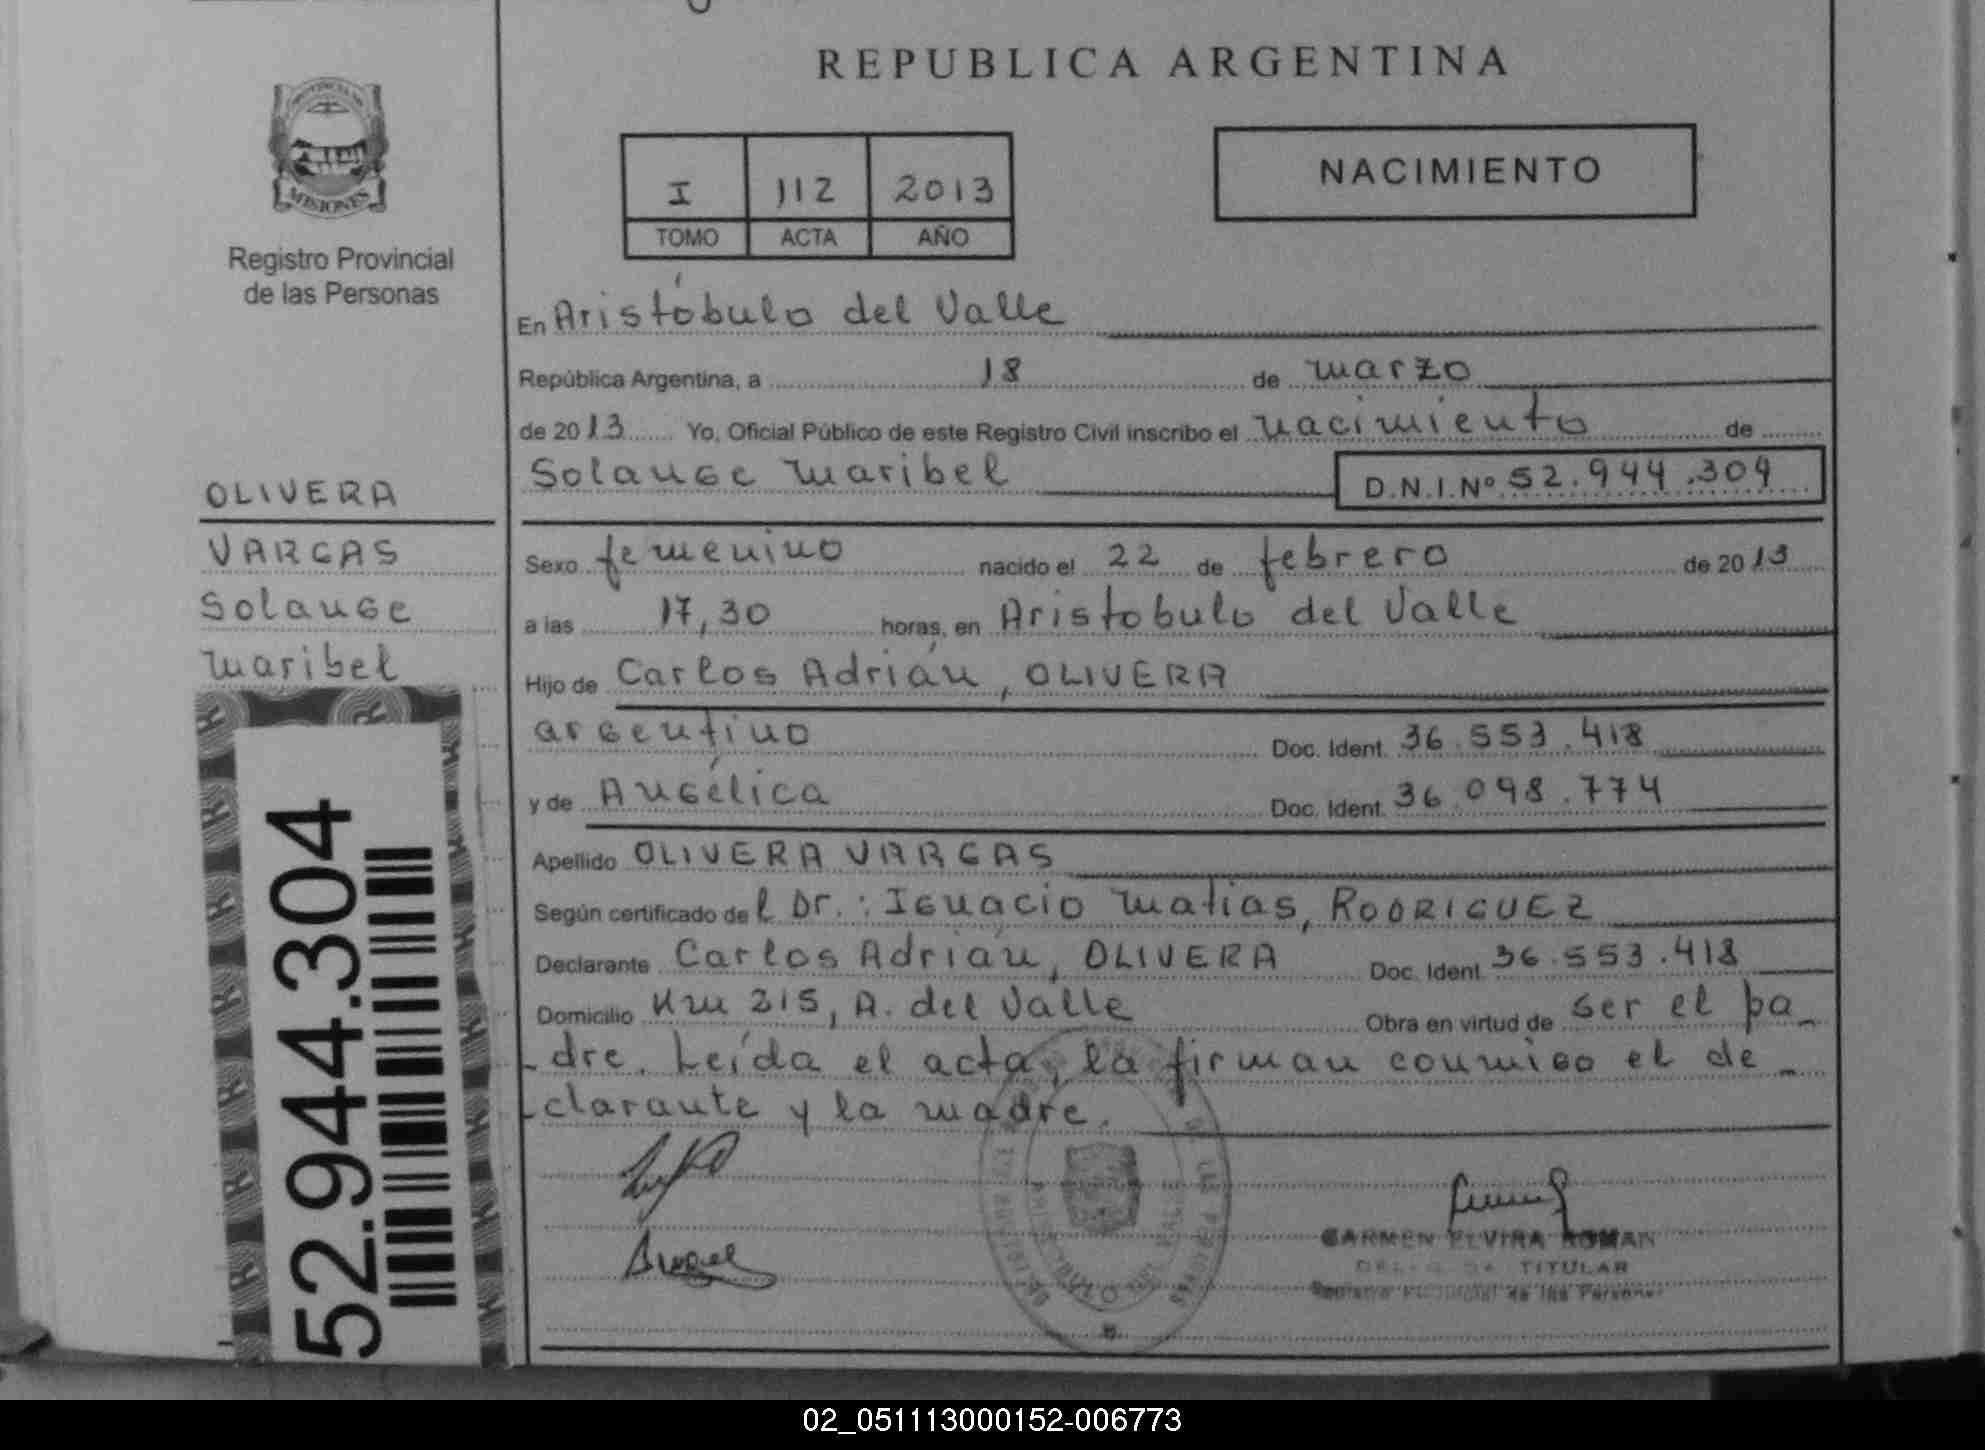 REPUBLICA ARGENTINA
PROVINCIA DE
MISIONES
Registro Provincial
de las Personas
I 112 2013
TOMO ACTA AÑO
NACIMIENTO
En Aristóbulo del Valle
República Argentina, a 18 de marzo
de 2013 Yo, Oficial Público de este Registro Civil inscribo el nacimiento de
Solange Maribel D.N.I.Nº 52.944.304
OLIVERA
VARGAS
Solange
Maribel
Sexo femenino nacido el 22 de febrero de 2013
a las 17,30 horas, en Aristobulo del Valle
Hijo de Carlos Adrián, OLIVERA
argentino Doc. Ident. 36.553.418
y de Angélica Doc. Ident. 36.098.774
Apellido OLIVERA VARGAS
Según certificado del Dr.: Ignacio Matias, RODRIGUEZ
Declarante Carlos Adrián, OLIVERA Doc. Ident. 36.553.418
Domicilio Km 215, A. del Valle Obra en virtud de ser el pa-
-dre. Leída el acta, la firman conmigo el de-
-clarante y la madre.
52.944.304
CARMEN ELVIRA ROMAN
TITULAR
Registro Provincial de las Personas
02_051113000152-006773